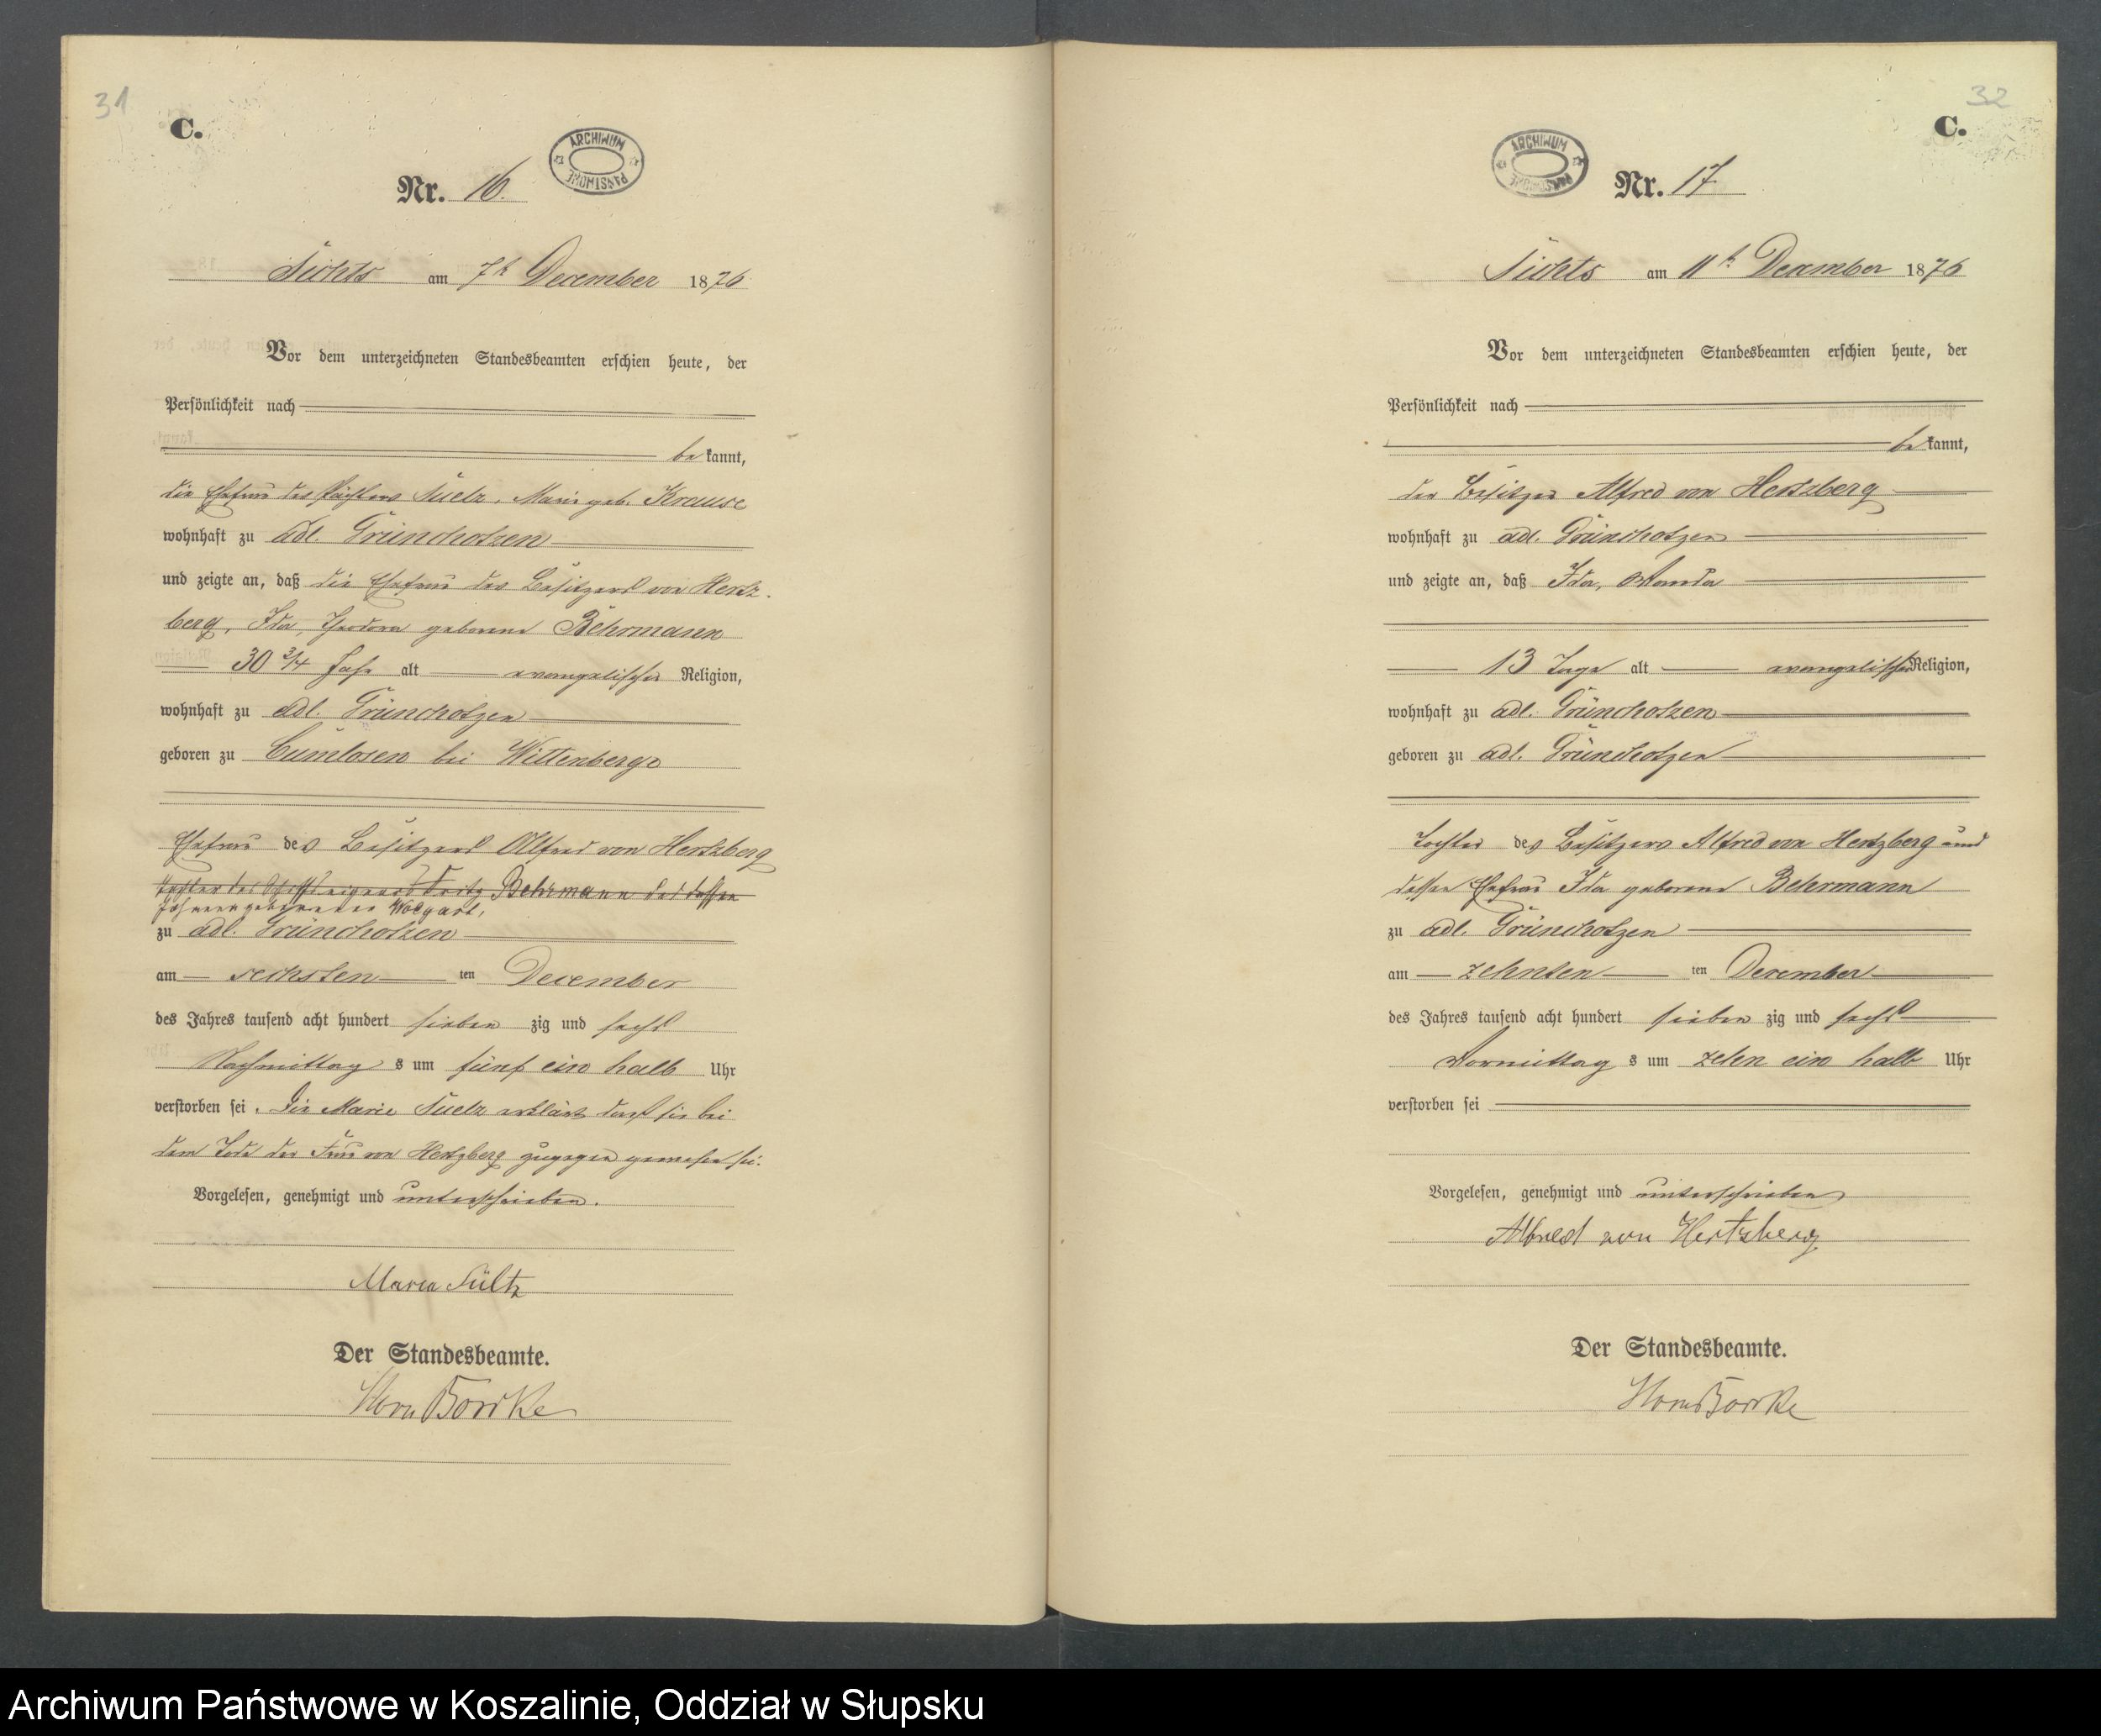 31
C.
ARCHIWUM PAŃSTWOWE
Nr. 16.
am 7t December 1876
Vor dem unterzeichneten Standesbeamten erschien heute, der
Persönlichkeit nach
be kannt,
die Ehefrau des Pächters Suelz, Marie geb. Krause
wohnhaft zu adl. Grünchotzen
und zeigte an, daß die Ehefrau des Besitzers von Hertz-
berg, Ida, Theodora geborene Behrmann
30 3/4 Jahr alt evangelischer Religion,
wohnhaft zu adl. Grünchotzen
geboren zu Cumlosen bei Wittenberge
Ehefrau des Besitzers Alfred von Hertzberg
Tochter des Schiffseigners Fritz Behrmann und dessen
geborene Wolgast,
zu adl. Grünchotzen
am sechsten ten December
des Jahres tausend acht hundert sieben zig und sechs
Nachmittag s um fünf ein halb Uhr
verstorben sei. Die Marie Suelz erklärt daß sie bei
dem Tode der Frau von Hertzberg zugegen gewesen sei.
Vorgelesen, genehmigt und unterschrieben.
Maria Sültz
Der Standesbeamte.
32
C.
ARCHIWUM PAŃSTWOWE
Nr. 17
am 11t December 1876
Vor dem unterzeichneten Standesbeamten erschien heute, der
Persönlichkeit nach
be kannt,
der Besitzer Alfred von Hertzberg
wohnhaft zu adl. Grünchotzen
und zeigte an, daß Ida, Wanda
13 Tage alt evangelischer Religion,
wohnhaft zu adl. Grünchotzen
geboren zu adl. Grünchotzen
Tochter des Besitzers Alfred von Hertzberg und
dessen Ehefrau Ida geborene Behrmann
zu adl. Grünchotzen
am zehnten ten December
des Jahres tausend acht hundert sieben zig und sechs
Vormittag s um zehn ein halb Uhr
verstorben sei
Vorgelesen, genehmigt und unterschrieben
Alfred von Hertzberg
Der Standesbeamte.
Archiwum Państwowe w Koszalinie, Oddział w Słupsku